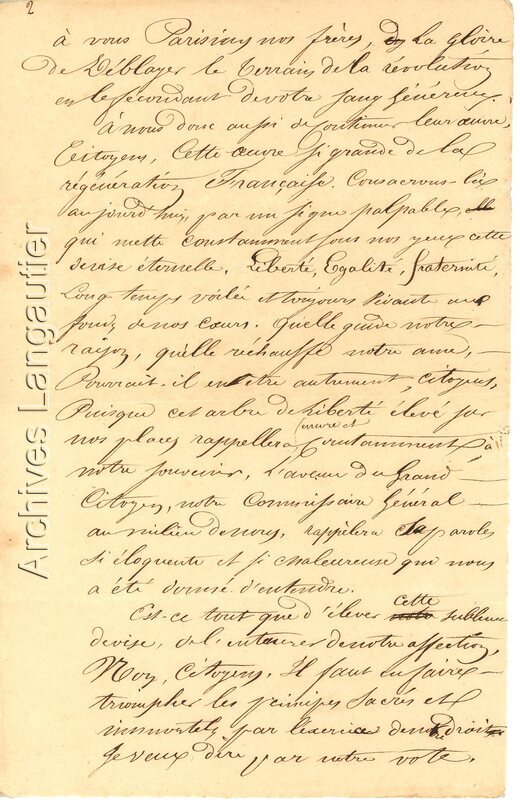 2
à vous Parisiens nos frères, la gloire
de déblayer le terrain de la révolution
en le fécondant de votre sang généreux.
à nous donc aussi de continuer leur œuvre,
Citoyens, Cette œuvre si grande de la
régénération Française. Consacrons-la
aujourd'hui, par un signe palpable,
qui mette constamment sous nos yeux cette
devise éternelle, Liberté, Egalité, fraternité,
Longtemps voilée et toujours vivante au
fond de nos cœurs. Qu'elle guide notre
raison, qu'elle réchauffe notre ame,
Pourrait-il en être autrement, citoyens,
Puisque cet arbre de Liberté élevé sur
nos places rappellera encore et Constamment à
notre souvenir, L'avenue du Grand
Citoyen, notre Commissaire Général
au milieu de nous, rappèlera paroles
si éloquente et si chaleureuse qui nous
a été donné d'entendre.
Est-ce tout que d'élever cette sublime
devise, de l'entourer de notre affection,
Non, Citoyens. Il faut en faire
triompher les principes sacrés et
immortels par l'exercice de notre droit
Je veux dire par notre vote.
Archives Langautier